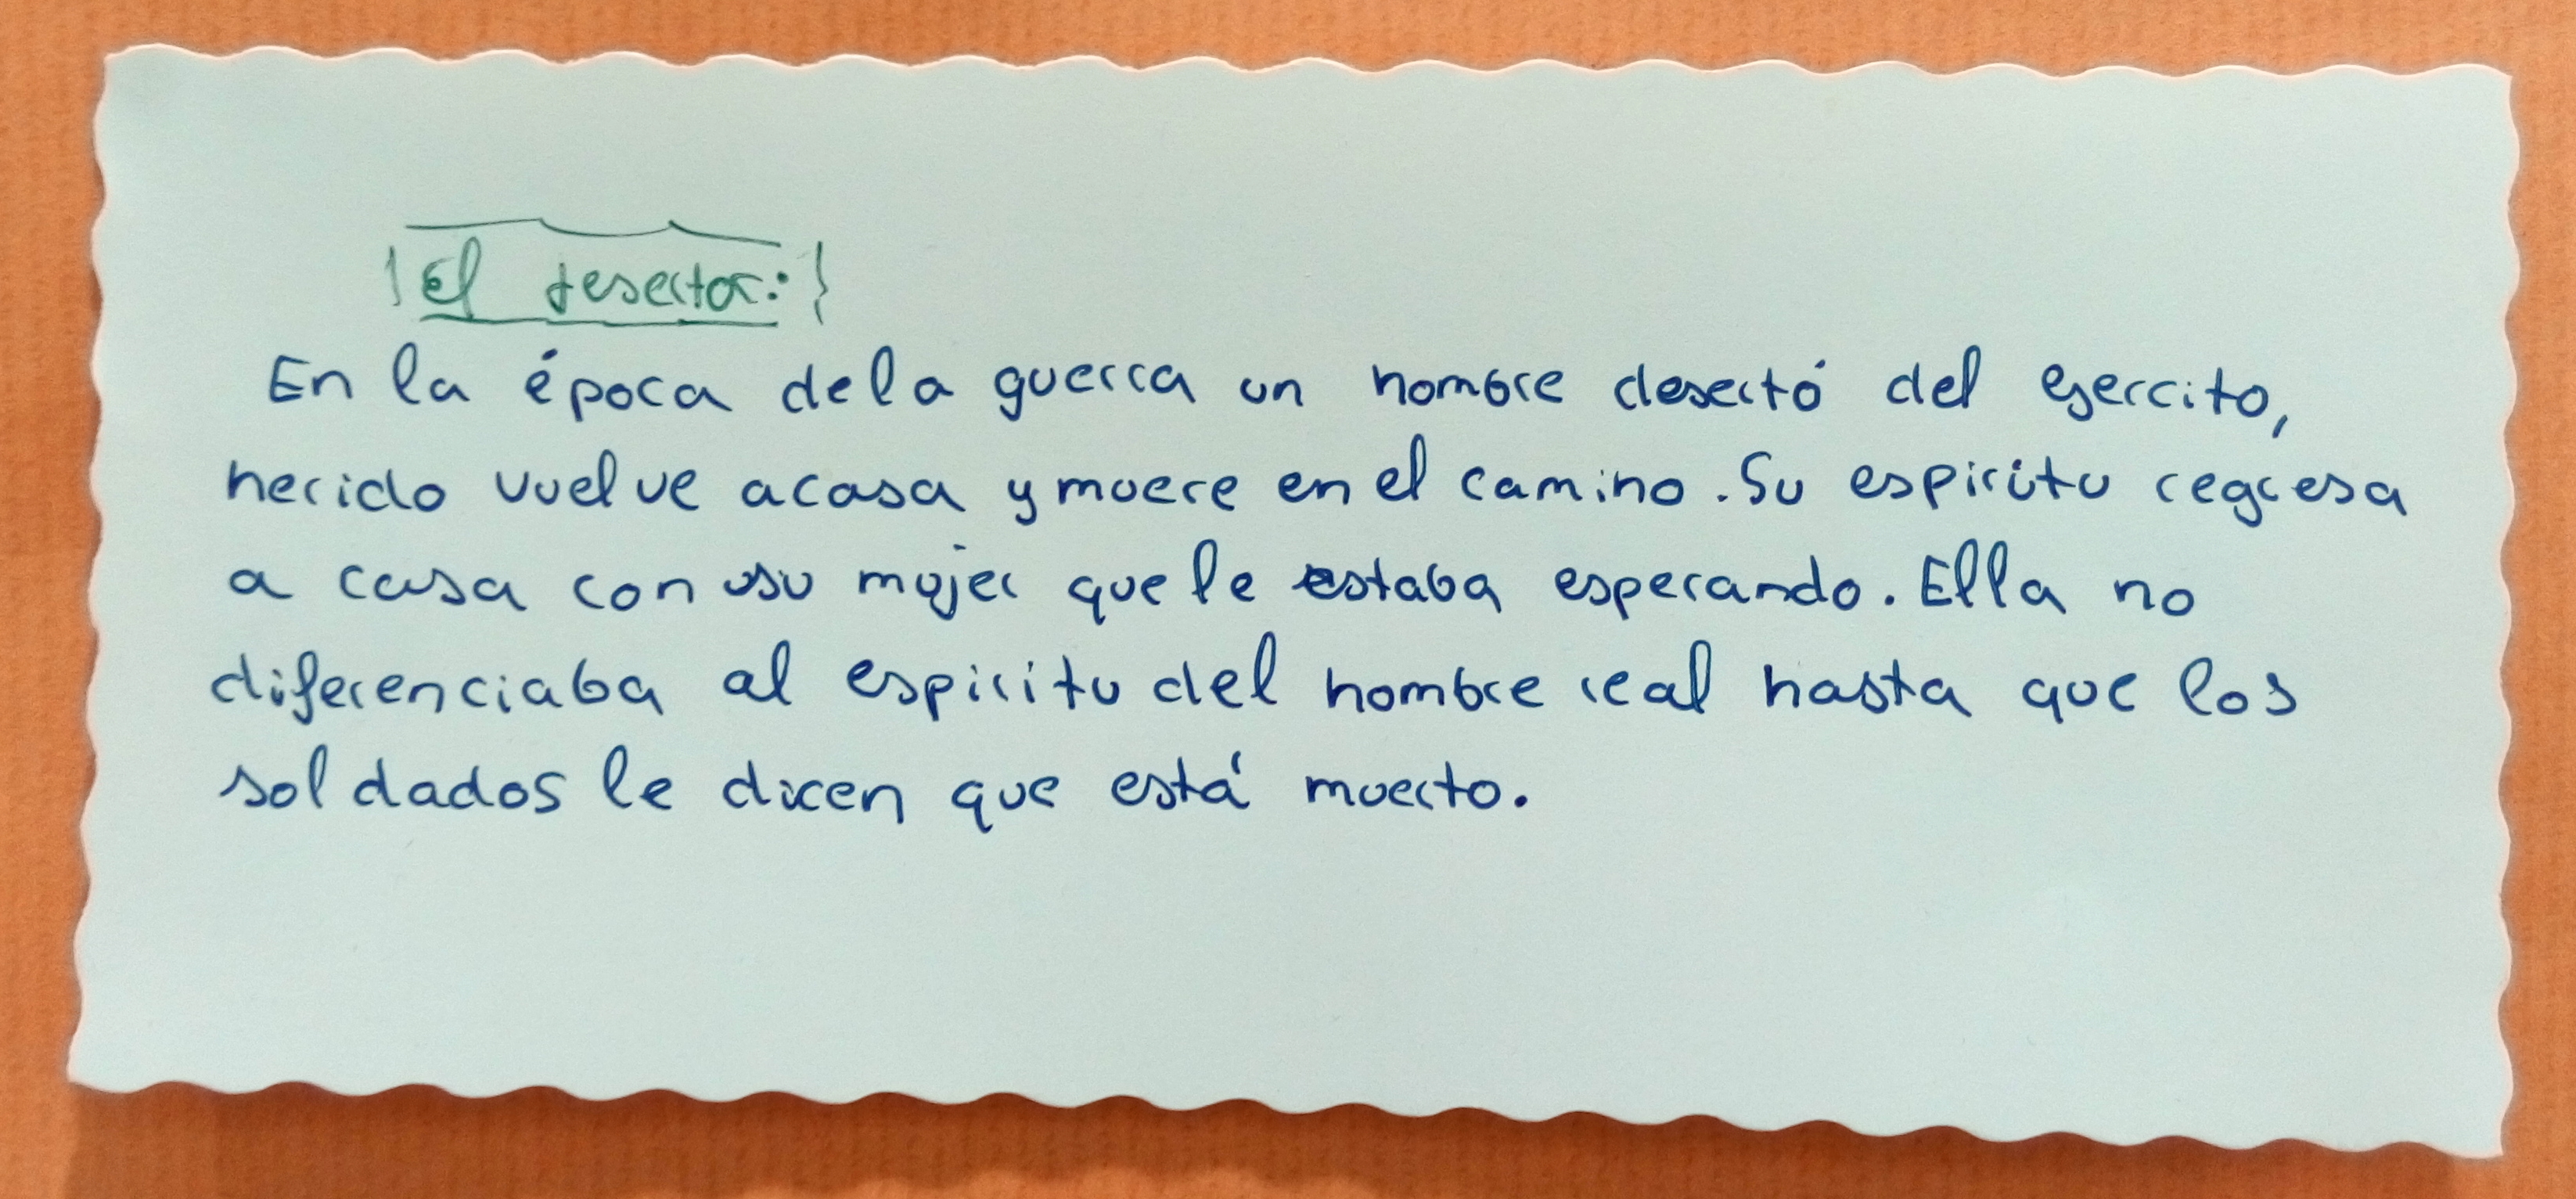 El desertor:
En la época de la guerra un hombre desertó del ejercito,
herido vuelve a casa y muere en el camino. Su espiritu regresa
a casa con su mujer que le estaba esperando. Ella no
diferenciaba al espiritu del hombre real hasta que los
soldados le dicen que está muerto.